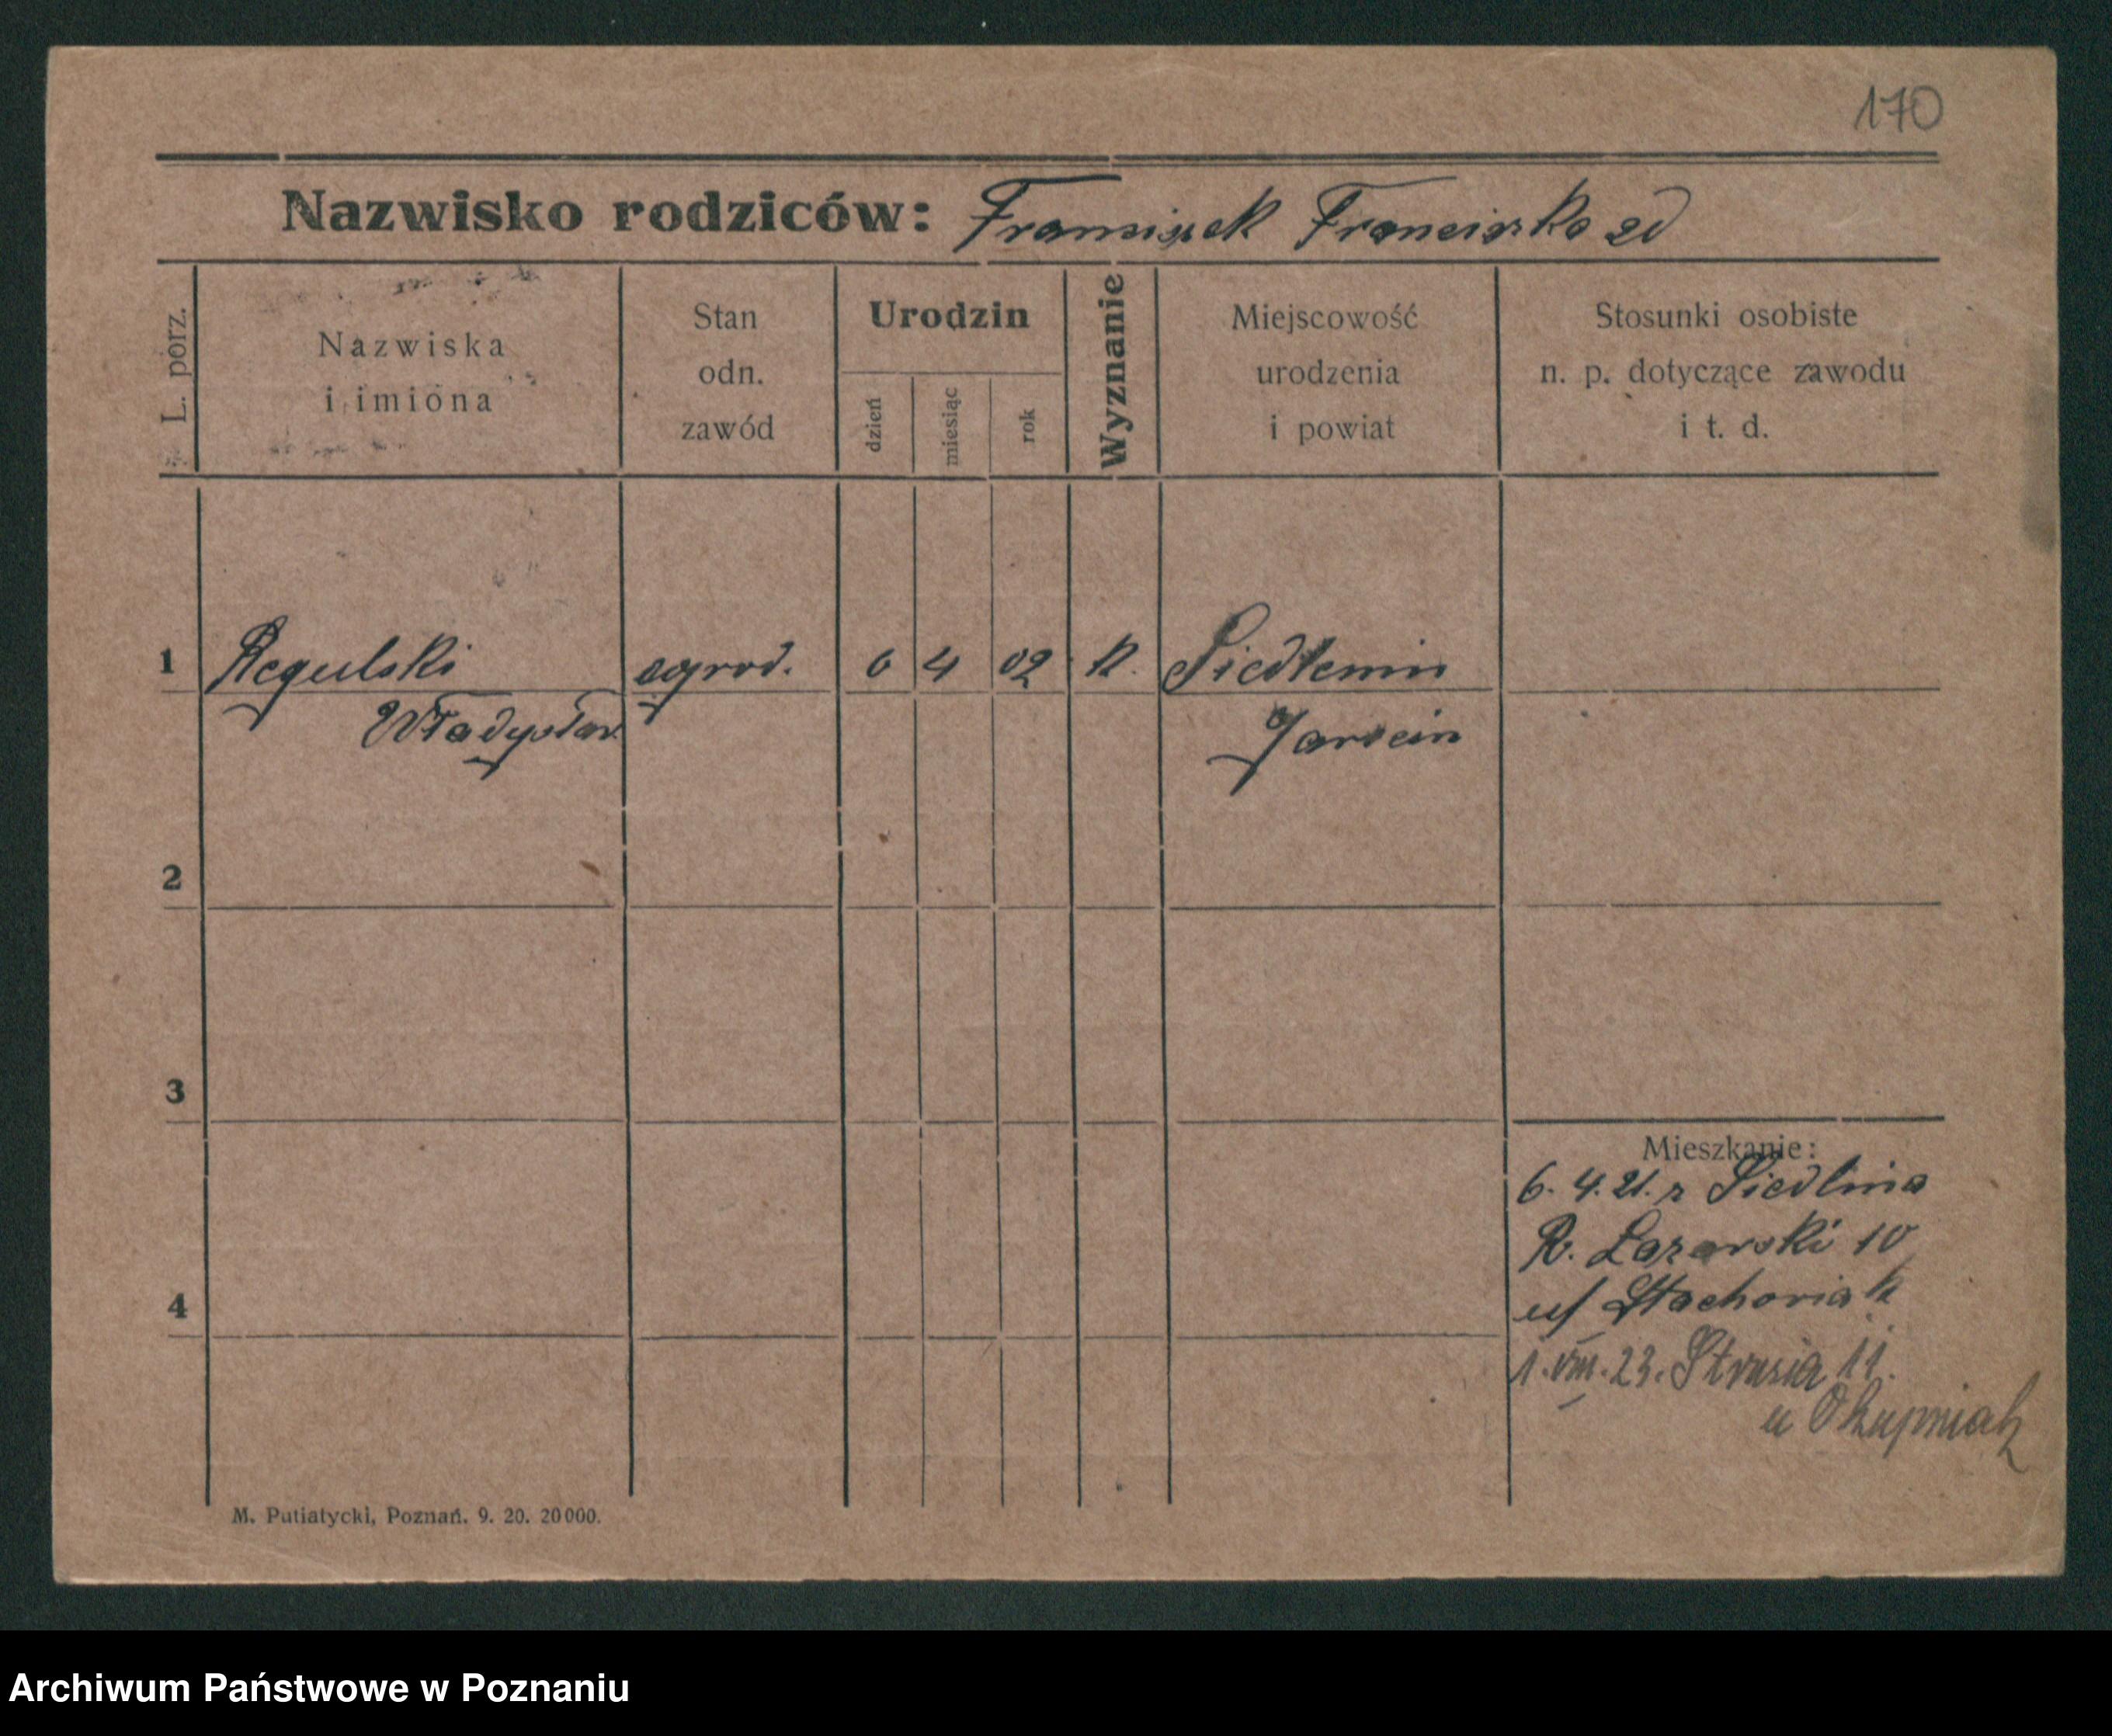 170
Nazwisko rodziców: Franciszek Franciszka
L. porz.
Nazwiska
i imiona
Stan
odn.
zawód
Urodzin
dzień
miesiąc
rok
Wyznanie
Miejscowość
urodzenia
i powiat
Stosunki osobiste
n. p. dotyczące zawodu
i t. d.
1 Regulski ogrod. 6 4 02 k. Siedlemin
Władysław Jarocin
2
3
4
Mieszkanie:
6. 4. 21. z
R. Łazarski 10
1. VIII. 23. Strusia 11.
u
M. Putiatycki, Poznań. 9. 20. 20000.
Archiwum Państwowe w Poznaniu